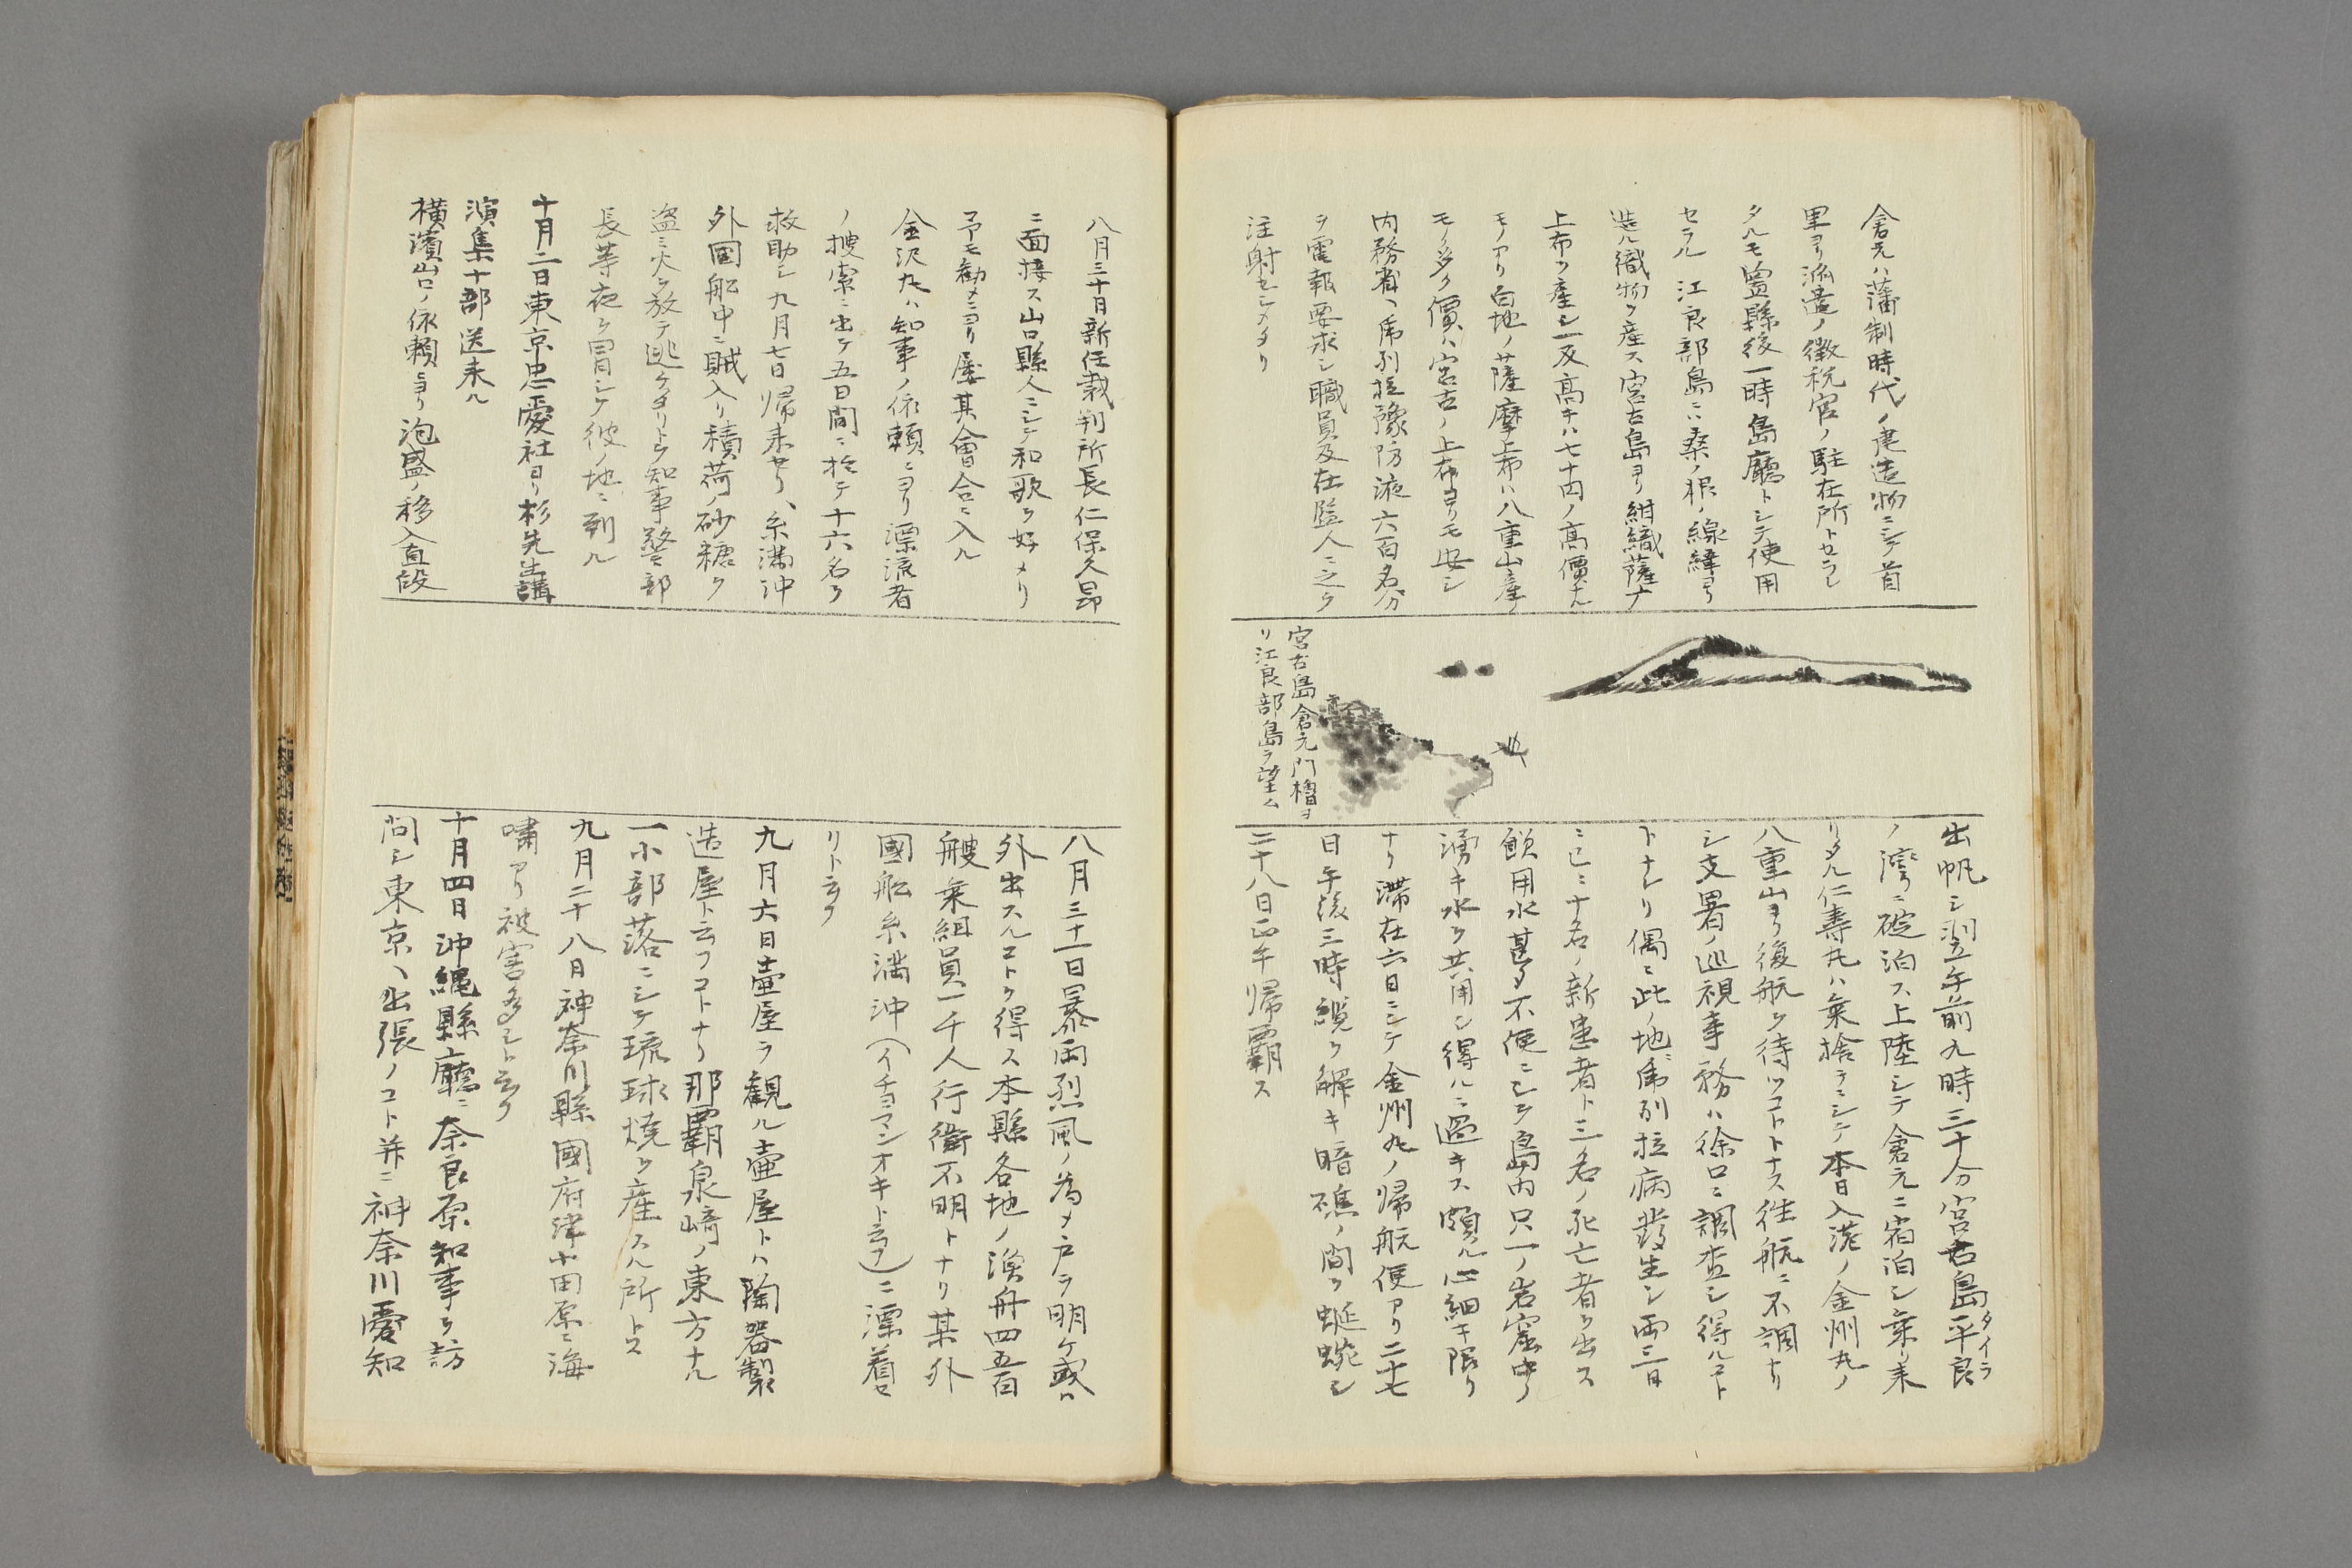 倉元ハ藩制時代ノ建造物ニシテ首
里ヨリ派遣ノ徴税官ノ駐在所トセラレ
タルモ置縣後一時島廳トシテ使用
セラル 江良部島ニハ桑ノ根ノ線緯ヨリ
造ル織物ヲ産ス宮古島ヨリ紺織薩ナ
上布ヲ産シ一反高キハ七十円ノ高價ナル
モノアリ白地ノ薩摩上布ハ八重山産ノ
モノ多ク價ハ宮古ノ上布ヨリモ安シ
内務省ヘ虎列拉豫防液六百名分
ヲ電報要求シ職員及在監人ニ之ヲ
注射セシメタリ
宮古島倉元門櫓ヨ
リ江良部島ヲ望ム
出帆シ翌午前九時三十分宮古島平良
タイラ
ノ湾ニ碇泊ス上陸シテ倉元ニ宿泊シ乗リ来
リタル仁壽丸ハ乗捨テニシテ本日入港ノ金州丸ノ
八重山ヨリ復航ヲ待ツコトトナス往航ニ不調ナリ
シ支署ノ巡視事務ハ徐ロニ調査シ得ルコト
トナレリ偶々此ノ地虎列拉病發生シ両三日
ニ已ニ十名ノ新患者ト三名ノ死亡者ヲ出ス
飲用水甚タ不便ニシテ島内只一ノ岩窟中ノ
湧キ水ヲ共用シ得ルニ過キス頗ル心細キ限リ
ナリ滞在六日ニシテ金州丸ノ帰航便アリ二十七
日午後三時纜ヲ解キ暗礁ノ間ヲ蜒蜿シ
二十八日正午帰覇ス
八月三十日新任裁判所長仁保久昂
ニ面接ス山口縣人ニシテ和歌ヲ好メリ
予モ勧メニヨリ屡其ノ會合ニ入ル
金沢丸ハ知事ノ依頼ニヨリ漂流者
ノ捜索ニ出テ五日間ニ於テ十六名ヲ
救助シ九月七日帰来セリ、糸満沖
外國舩中ニ賊入リ積荷ノ砂糖ヲ
盗ミ火ヲ放テ逃ケタリト云フ知事警部
長等夜ヲ冒シテ彼ノ地ニ到ル
十月二日東京忠愛社ヨリ杉先生講
演集十部送来ル
横濱山口ノ依頼ニヨリ泡盛ノ移入直段
八月三十一日暴雨烈風ノ為メ戸ヲ明ケ或ハ
外出スルコトヲ得ス本縣各地ノ漁舟四五百
艘乗組員一千人行衛不明トナリ某外
國舩糸満沖(イチヨマンオキト云フ)ニ漂着セ
リト云フ
九月六日壷屋ヲ観ル壷屋トハ陶器製
造屋ト云フコトナリ那覇泉崎ノ東方ナル
一小部落ニシテ琉球焼ヲ産スル所トス
九月二十八日神奈川縣國府津小田原ニ海
嘯アリ被害多シト云フ
十月四日沖縄縣廳ニ奈良原知事ヲ訪
問シ東京ヘ出張ノコト并ニ神奈川愛知